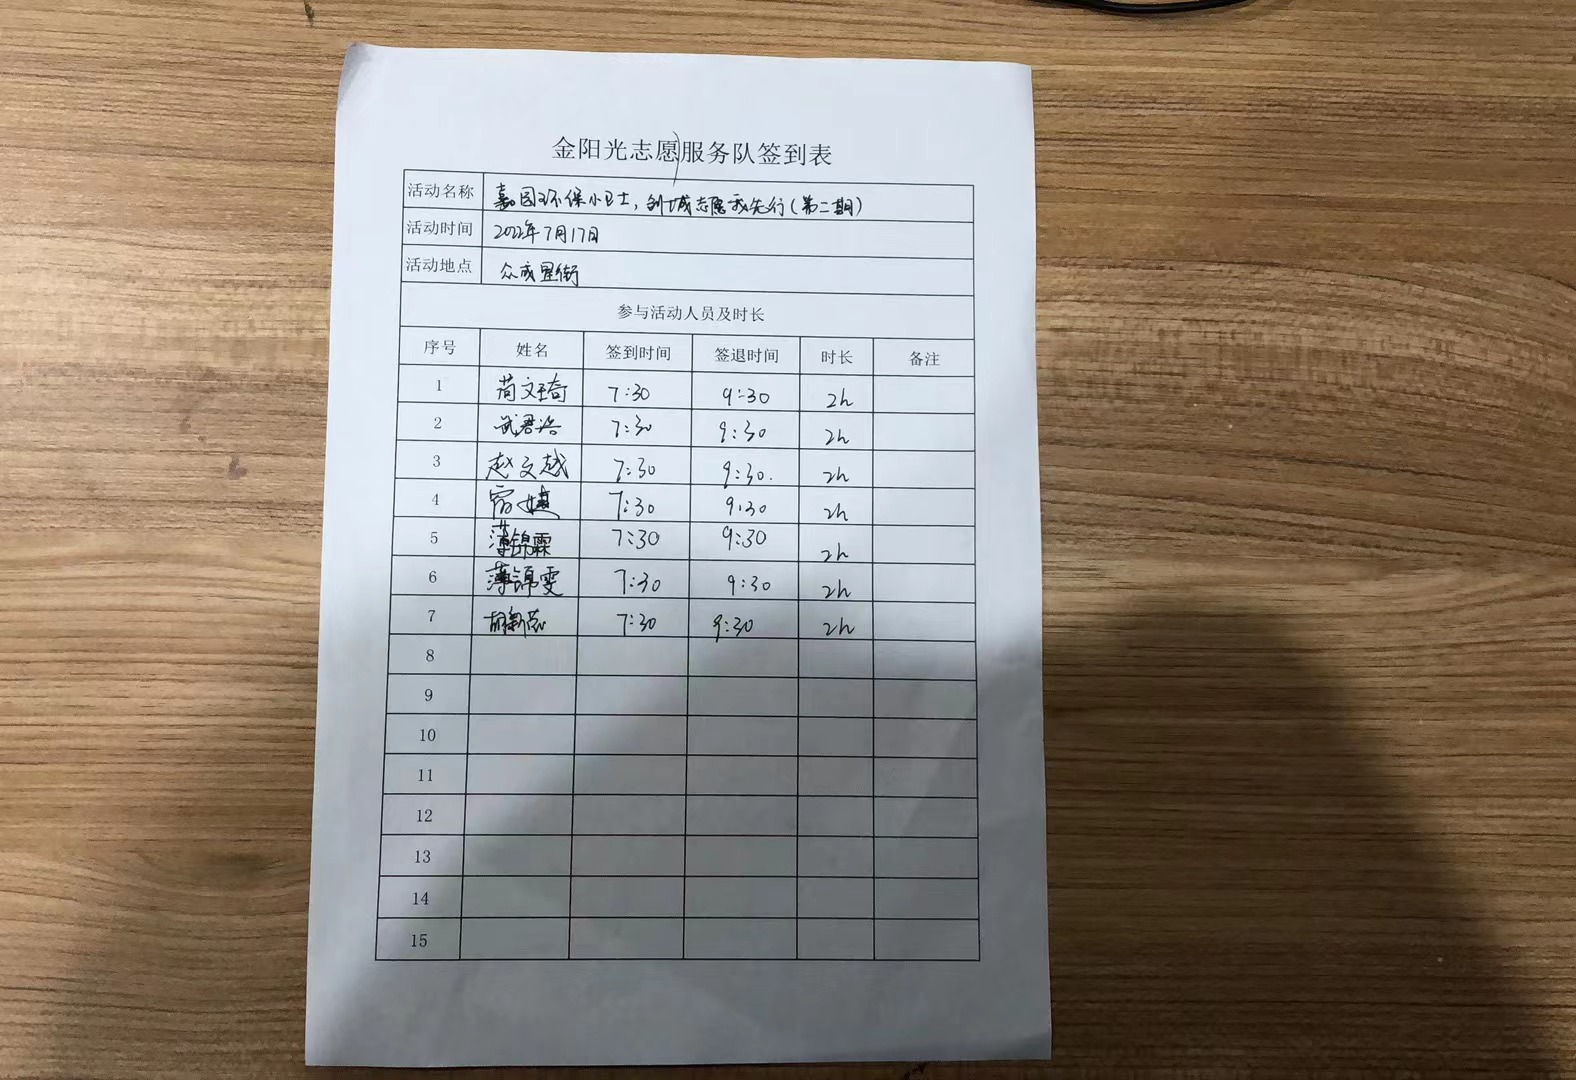 金阳光志愿服务队签到表
活动名称 嘉园环保小卫士，创城志愿我先行(第二期)
活动时间 2022年7月17日
活动地点 众成星街
参与活动人员及时长
序号 姓名 签到时间 签退时间 时长 备注
1 荀文琦 7:30 9:30 2h
2 武君浩 7:30 9:30 2h
3 赵文越 7:30 9:30. 2h
4 宿婕 7:30 9:30 2h
5 薄锦霖 7:30 9:30 2h
6 薄锦雯 7:30 9:30 2h
7 胡新蕊 7:30 9:30 2h
8
9
10
11
12
13
14
15